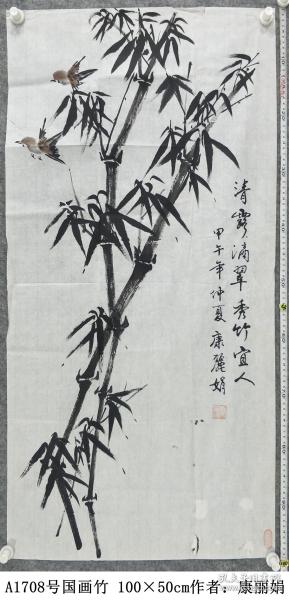 清露滴翠秀竹宜人
甲午年仲夏康麗娟
A1708号国画竹 100×50cm作者：康丽娟